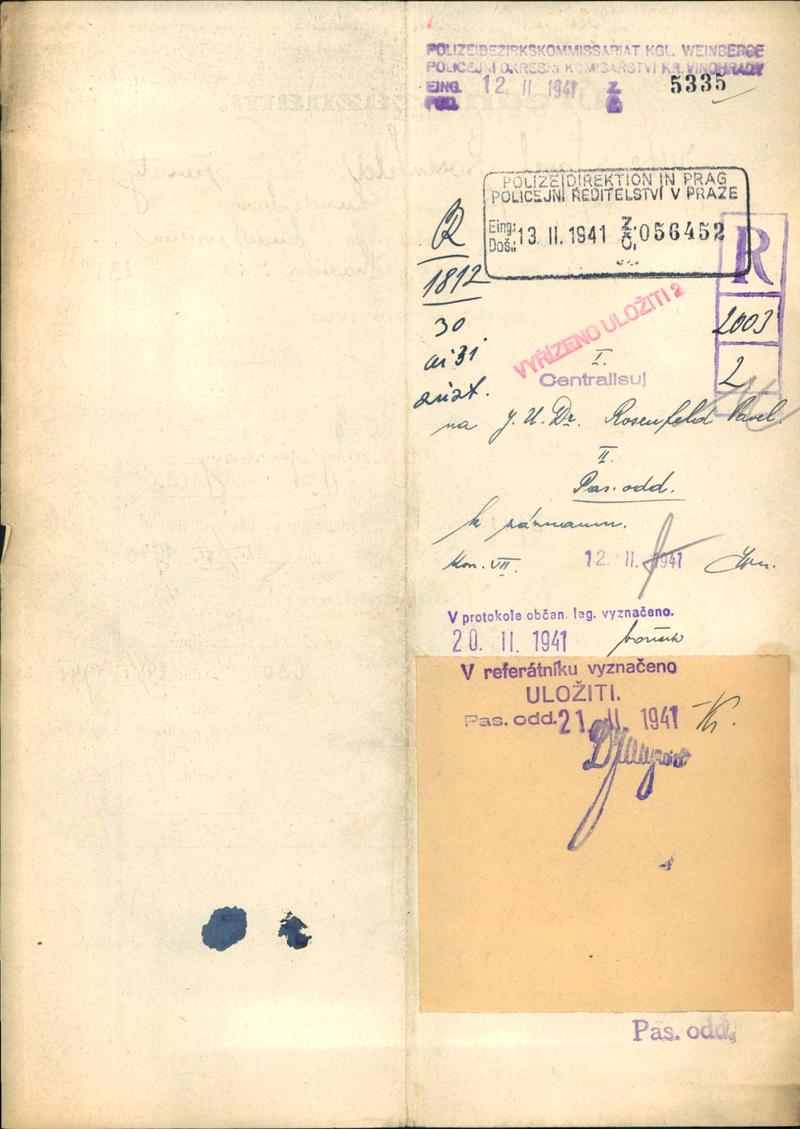 POLIZEIBEZIRKSKOMMISSARIAT KGL. WEINBERGE
POLICEJNÍ OKRESNÍ KOMISAŘSTVÍ KR. VINOHRADY
EING. 12. II. 1941 Z 5335
POD.
POLIZEIDIREKTION IN PRAG
POLICEJNÍ ŘEDITELSTVÍ V PRAZE
Eing.: 13. II. 1941 Z. 056452
Doš.: Č.
R
1812
30
R
2003
2
VYŘÍZENO ULOŽITI 2
I.
Centralisuj
na J. U. Dr. Rosenfeld Pavel
II.
Pas. odd.
k záznamu.
Kom. VII. 12. II. 1941
V protokole občan. leg. vyznačeno.
20. II. 1941
V referátníku vyznačeno
ULOŽITI.
Pas. odd. 21. II. 1941 K.
Pas. odd.